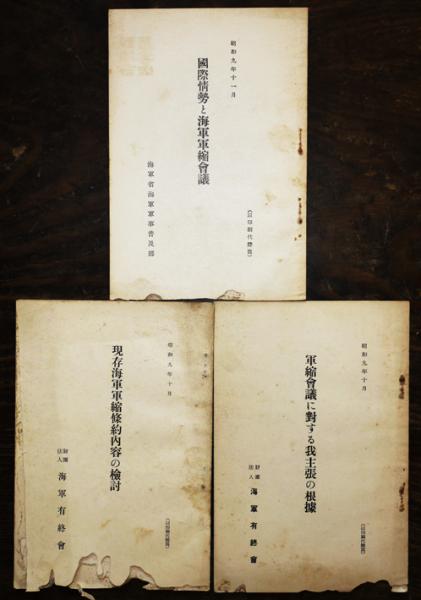 昭和九年十一月
國際情勢と海軍軍縮會議
海軍省海軍軍事普及部
(以印刷代謄寫)
昭和九年十月
現存海軍軍縮條約內容の檢討
財團法人 海軍有終會
(以印刷代謄寫)
昭和九年十月
軍縮會議に對する我主張の根據
財團法人 海軍有終會
(以印刷代謄寫)